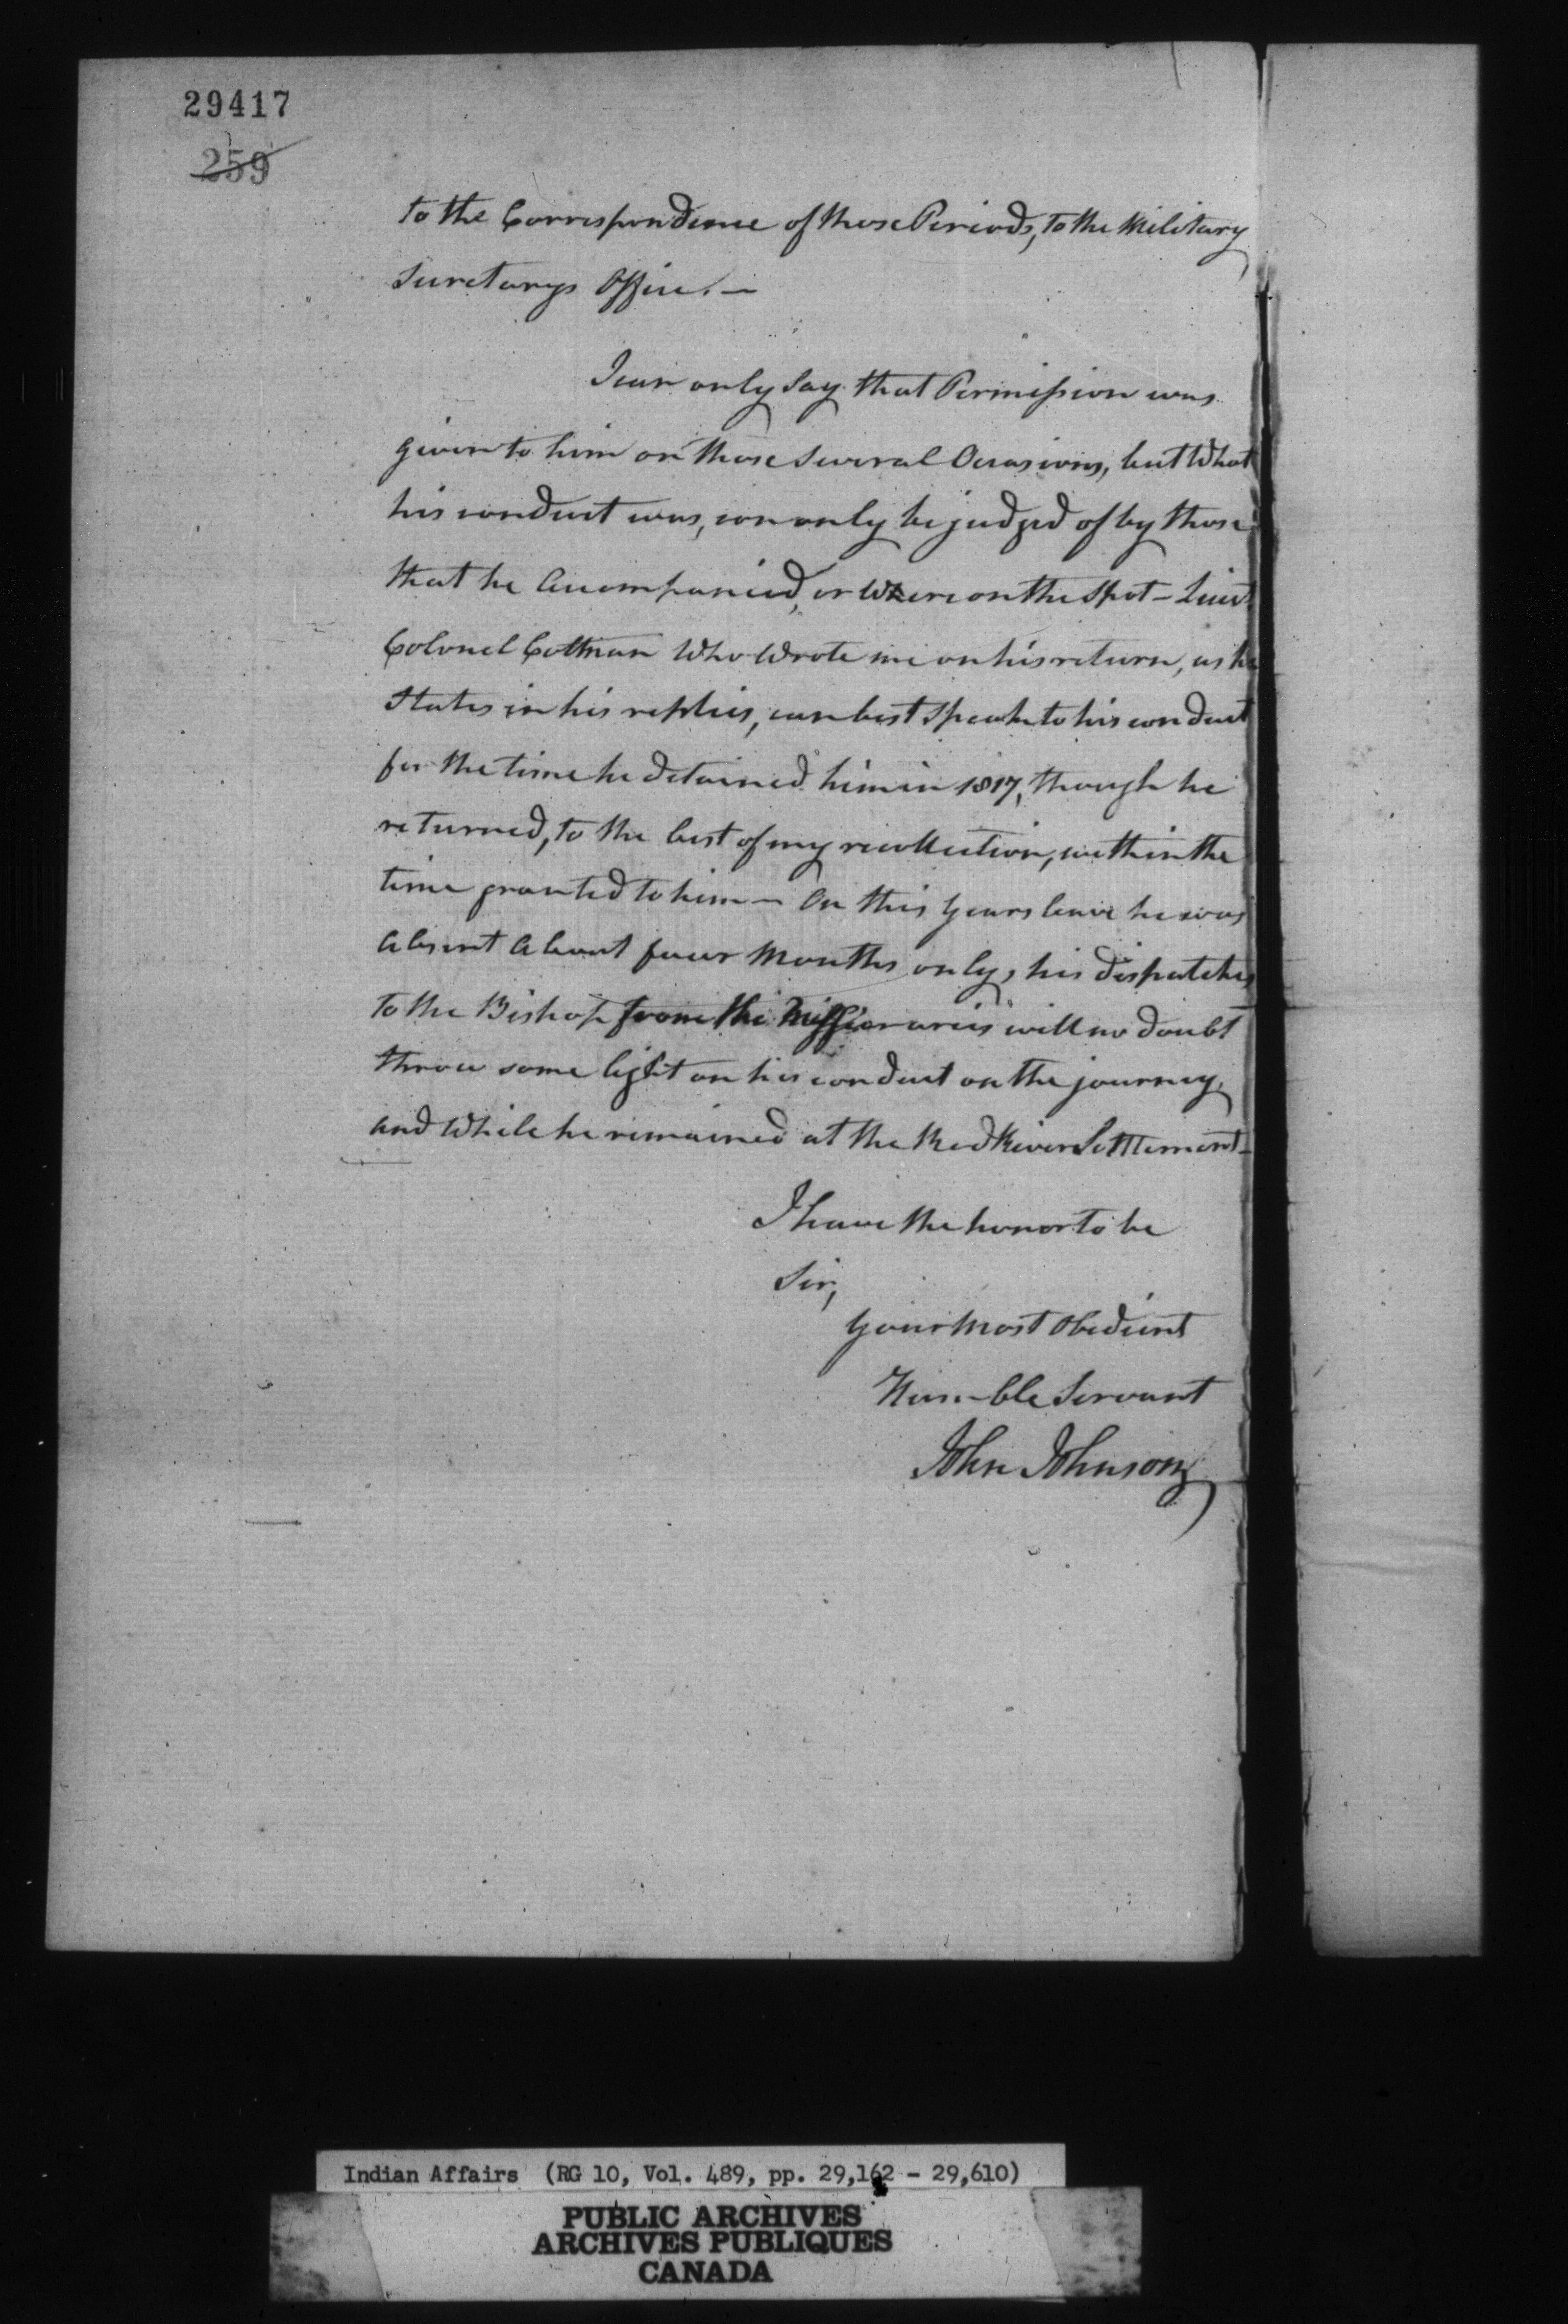 29417
259
to the Correspondence of those Periods, to the Military
Secretarys Office. —
I can only Say that Permission was
given to him on those Several Occasions, but What
his conduct was, can only be judged of by those
that he Accompanied, or Where on the Spot – Lieut
Colonel Coltman Who Wrote me on his return, as he
States in his replies, can best Speak to his conduct
for the time he detained him in 1817, though he
returned, to the best of my recollection, within the
time granted to him – On this Years leave he was
Absent About four Months only, his dispatches
to the Bishop from the Missionaries will no doubt
throw some light on his conduct on the journey,
and While he remained at the Red River Settlement –
I have the honor to be
Sir,
Your Most Obedient
Humble Servant
John Johnson
Indian Affairs (RG 10, Vol. 489, pp. 29,162 - 29,610)
PUBLIC ARCHIVES
ARCHIVES PUBLIQUES
CANADA